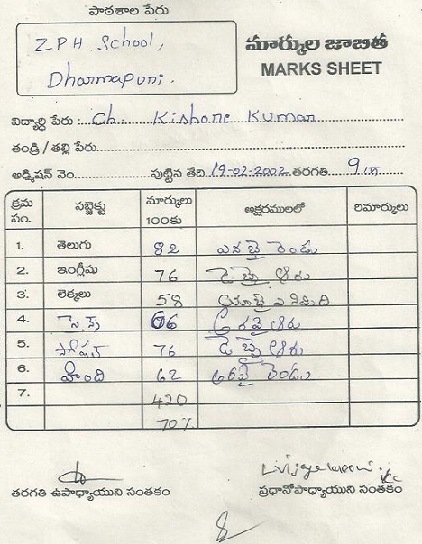 పాఠశాల పేరు
ZPH School,
Dharmapuri.
మార్కుల జాబితా
MARKS SHEET
విద్యార్థి పేరు : Ch. Kishore Kumar
తండ్రి / తల్లి పేరు
అడ్మిషన్ నెం. పుట్టిన తేది 19-02-2002 తరగతి 9th
క్రమ సం. సబ్జెక్టు మార్కులు 100కు అక్షరములలో రిమార్కులు
1. తెలుగు 82 ఎనభై రెండు
2. ఇంగ్లీషు 76 డెబ్బై ఆరు
3. లెక్కలు 58 యాభై ఎనిమిది
4. సైన్స్ 66 అరవై ఆరు
5. సోషల్ 76 డెబ్బై ఆరు
6. హింది 62 అరవై రెండు
7. 420
70%
తరగతి ఉపాధ్యాయుని సంతకం ప్రధానోపాధ్యాయుని సంతకం